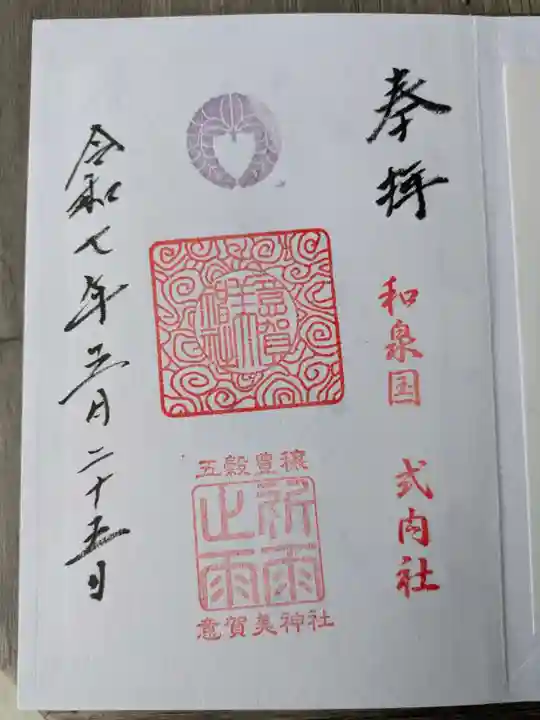 奉拝
和泉国 式内社
意賀美神社
五穀豊穣
祈雨
止雨
意賀美神社
令和七年五月二十五日